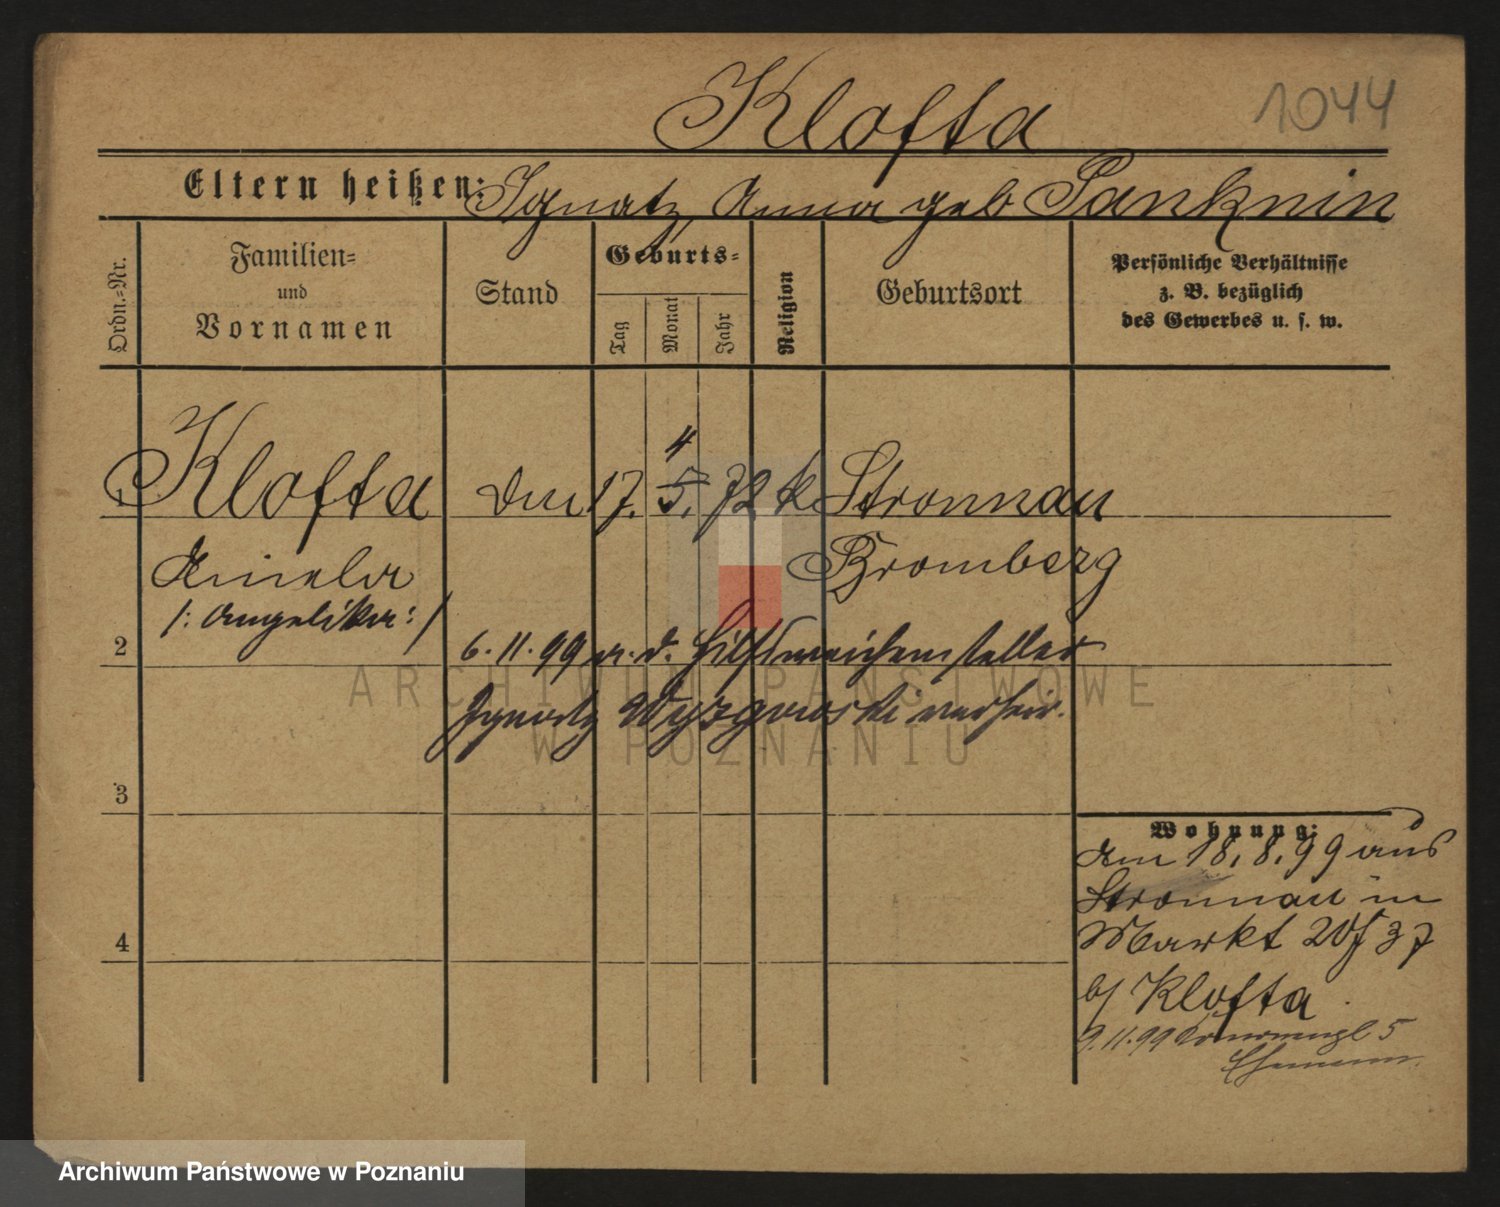 Klofta 1044
Eltern heißen: Ignatz, Anna geb Panknin
Ordn.=Nr.
Familien=
und
Vornamen
Stand
Geburts=
Tag
Monat
Jahr
Religion
Geburtsort
Persönliche Verhältnisse
z. B. bezüglich
des Gewerbes u. s. w.
4
1 Klofta 17. 5. 72 k Stronnau
Aniela Bromberg
/: Angelika :/
2 6.11.99 m. d. Hilfsweichensteller
Ignatz Wyzgowski verheir.
3
Wohnung:
Am 18.8.99 aus
Stronnau in
Markt 37
b/ Klofta
4
9.11.99 5
Ehemann
ARCHIWUM PAŃSTWOWE
W POZNANIU
Archiwum Państwowe w Poznaniu